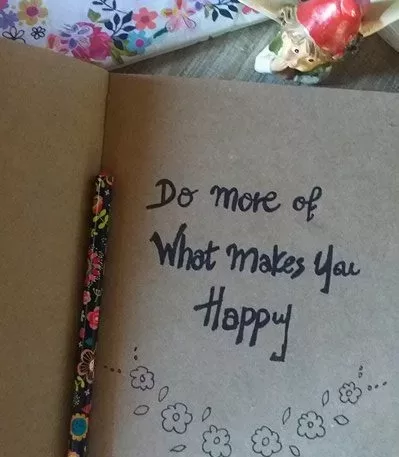 Do more of
What makes You
Happy